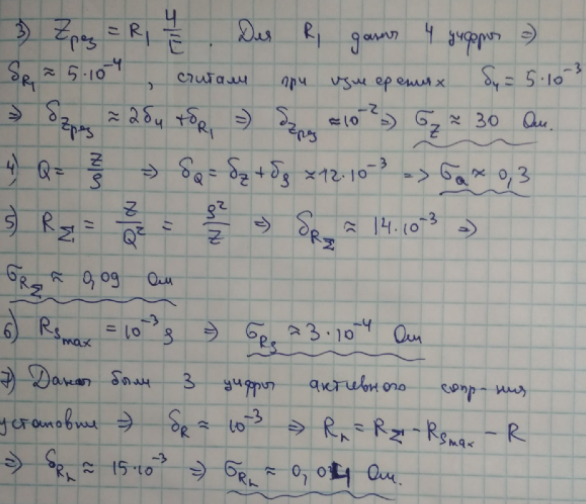 3) Z_рез = R_1 U/E. Для R_1 даны 4 цифры ⇒
δ_R_1 ≈ 5·10^-4, считали при измерениях δ_U = 5·10^-3
⇒ δ_Z_рез ≈ 2δ_U + δ_R_1 ⇒ δ_Z_рез ≈ 10^-2 ⇒ σ_Z ≈ 30 Ом.
4) Q = Z/ρ ⇒ δ_Q = δ_Z + δ_ρ ≈ 12·10^-3 ⇒ σ_Q ≈ 0,3
5) R_Σ = Z/Q^2 = ρ^2/Z ⇒ δ_R_Σ ≈ 14·10^-3 ⇒
σ_R_Σ ≈ 0,09 Ом
6) R_S_max = 10^-3 ρ ⇒ σ_R_S ≈ 3·10^-4 Ом
7) Даны были 3 цифры активного сопр-ния
установки ⇒ δ_R ≈ 10^-3 ⇒ R_L = R_Σ - R_S_max - R
⇒ δ_R_L ≈ 15·10^-3 ⇒ σ_R_L ≈ 0,04 Ом.